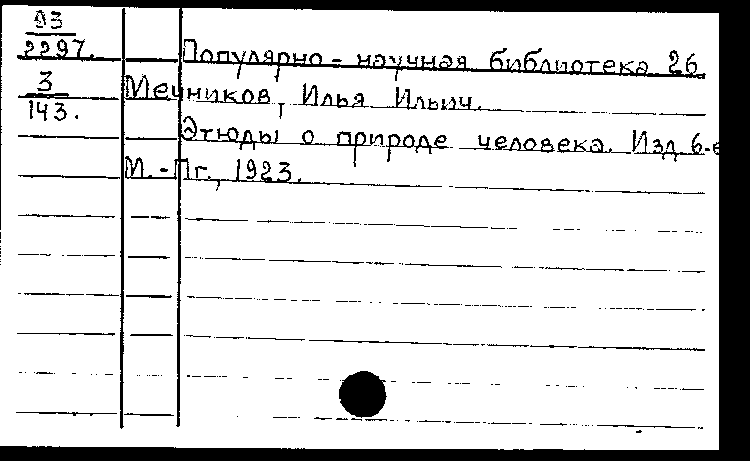 93
2297.
Популярно-научная библиотека 26
3
143.
Мечников, Илья Ильич.
Этюды о природе человека. Изд 6-е
М.-Пг., 1923.